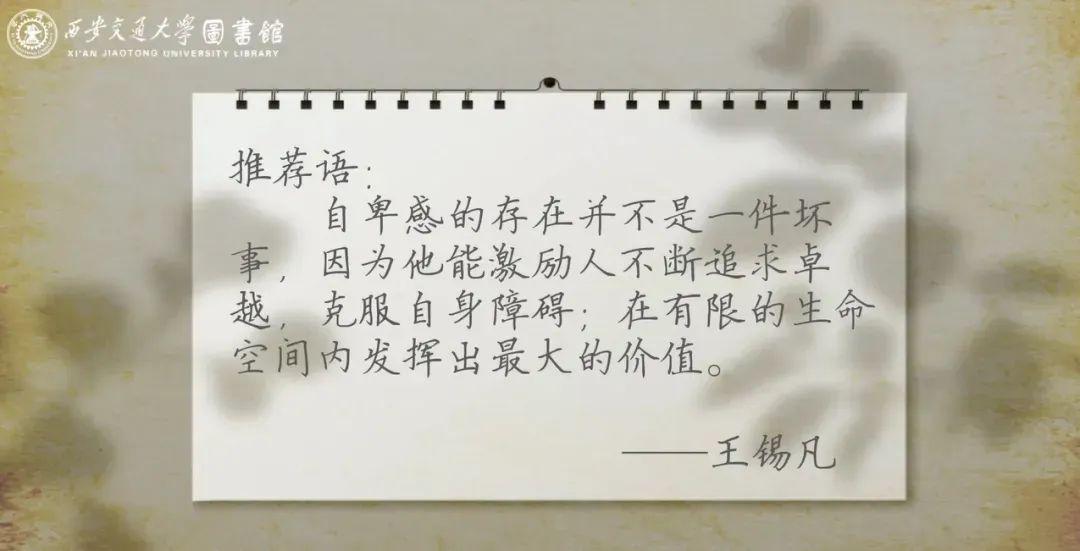 西安交通大学圖書館
XI'AN JIAOTONG UNIVERSITY LIBRARY
推荐语：
自卑感的存在并不是一件坏
事，因为他能激励人不断追求卓
越，克服自身障碍；在有限的生命
空间内发挥出最大的价值。
——王锡凡